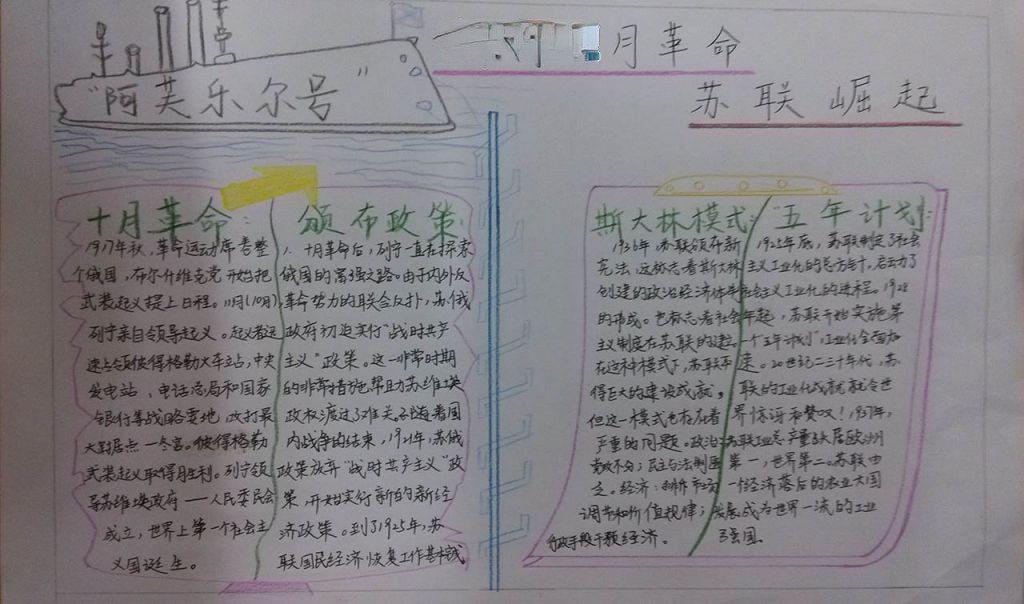 月革命
苏联崛起
“阿芙乐尔号”
十月革命：
1917年秋，革命运动席卷整
个俄国，布尔什维克党开始把
武装起义提上日程。11月(10月)，
列宁亲自领导起义。起义者迅
速占领彼得格勒火车站，中央
发电站、电话总局和国家
银行等战略要地，攻打最
大据点—冬宫。彼得格勒
武装起义取得胜利。列宁领
导苏维埃政府——人民委员会
成立，世界上第一个社会主
义国诞生。
颁布政策：
1、十月革命后，列宁一直在探索
俄国的富强之路。由于内外反
革命势力的联合反扑，苏俄
政府初迫实行“战时共产
主义”政策。这一非常时期
的非常措施帮助苏维埃
政权渡过了难关。随着国
内战争的结束，1921年，苏俄
政策放弃“战时共产主义”政
策，开始实行新的新经
济政策。到了1925年，苏
联国民经济恢复工作基本成
斯大林模式：
1936年苏联颁布新
宪法，这标志着斯大林
创建的政治经济体制
的形成。也标志着社会
主义制度在苏联的建立。
在这种模式下，苏联取
得巨大的建设成就。
但这一模式也存在着
严重的问题。政治：
党政不分；民主与法制匮
乏。经济：排斥市场
调节和价值规律；
行政手段干预经济。
“五年计划”：
1925年底，苏联制定了社会
主义工业化的总方针，启动了
社会主义工业化的进程。1928
年起，苏联开始实施第
一个五年计划”，工业化全面加
速。20世纪二三十年代，苏
联的工业化成就就令世
界惊讶和赞叹！1937年，
苏联工业总产量跃居欧洲
第一，世界第二。苏联由
一个经济落后的农业大国
发展成为世界一流的工业
强国。